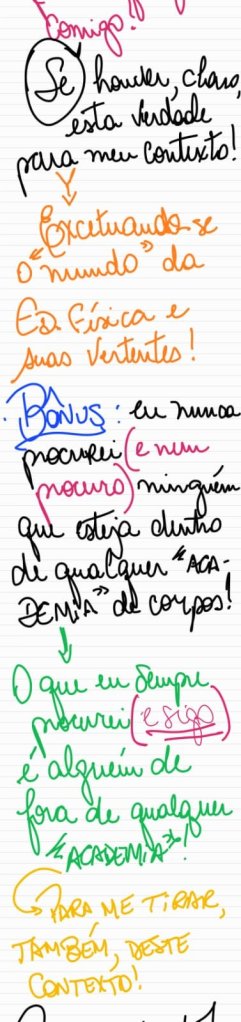 Comigo?!
Se houver, claro,
esta verdade
para meu contexto!
Excetuando-se
o "mundo" da
Ed. Física e
suas Vertentes!
. BÔNUS: eu nunca
procurei (e nem
procuro) ninguém
que esteja dentro
de qualquer "ACA-
DEMIA" de corpos!
O que eu sempre
procurei (e sigo)
é alguém de
fora de qualquer
"ACADEMIA"!
PARA ME TIRAR,
TAMBÉM, DESTE
CONTEXTO!